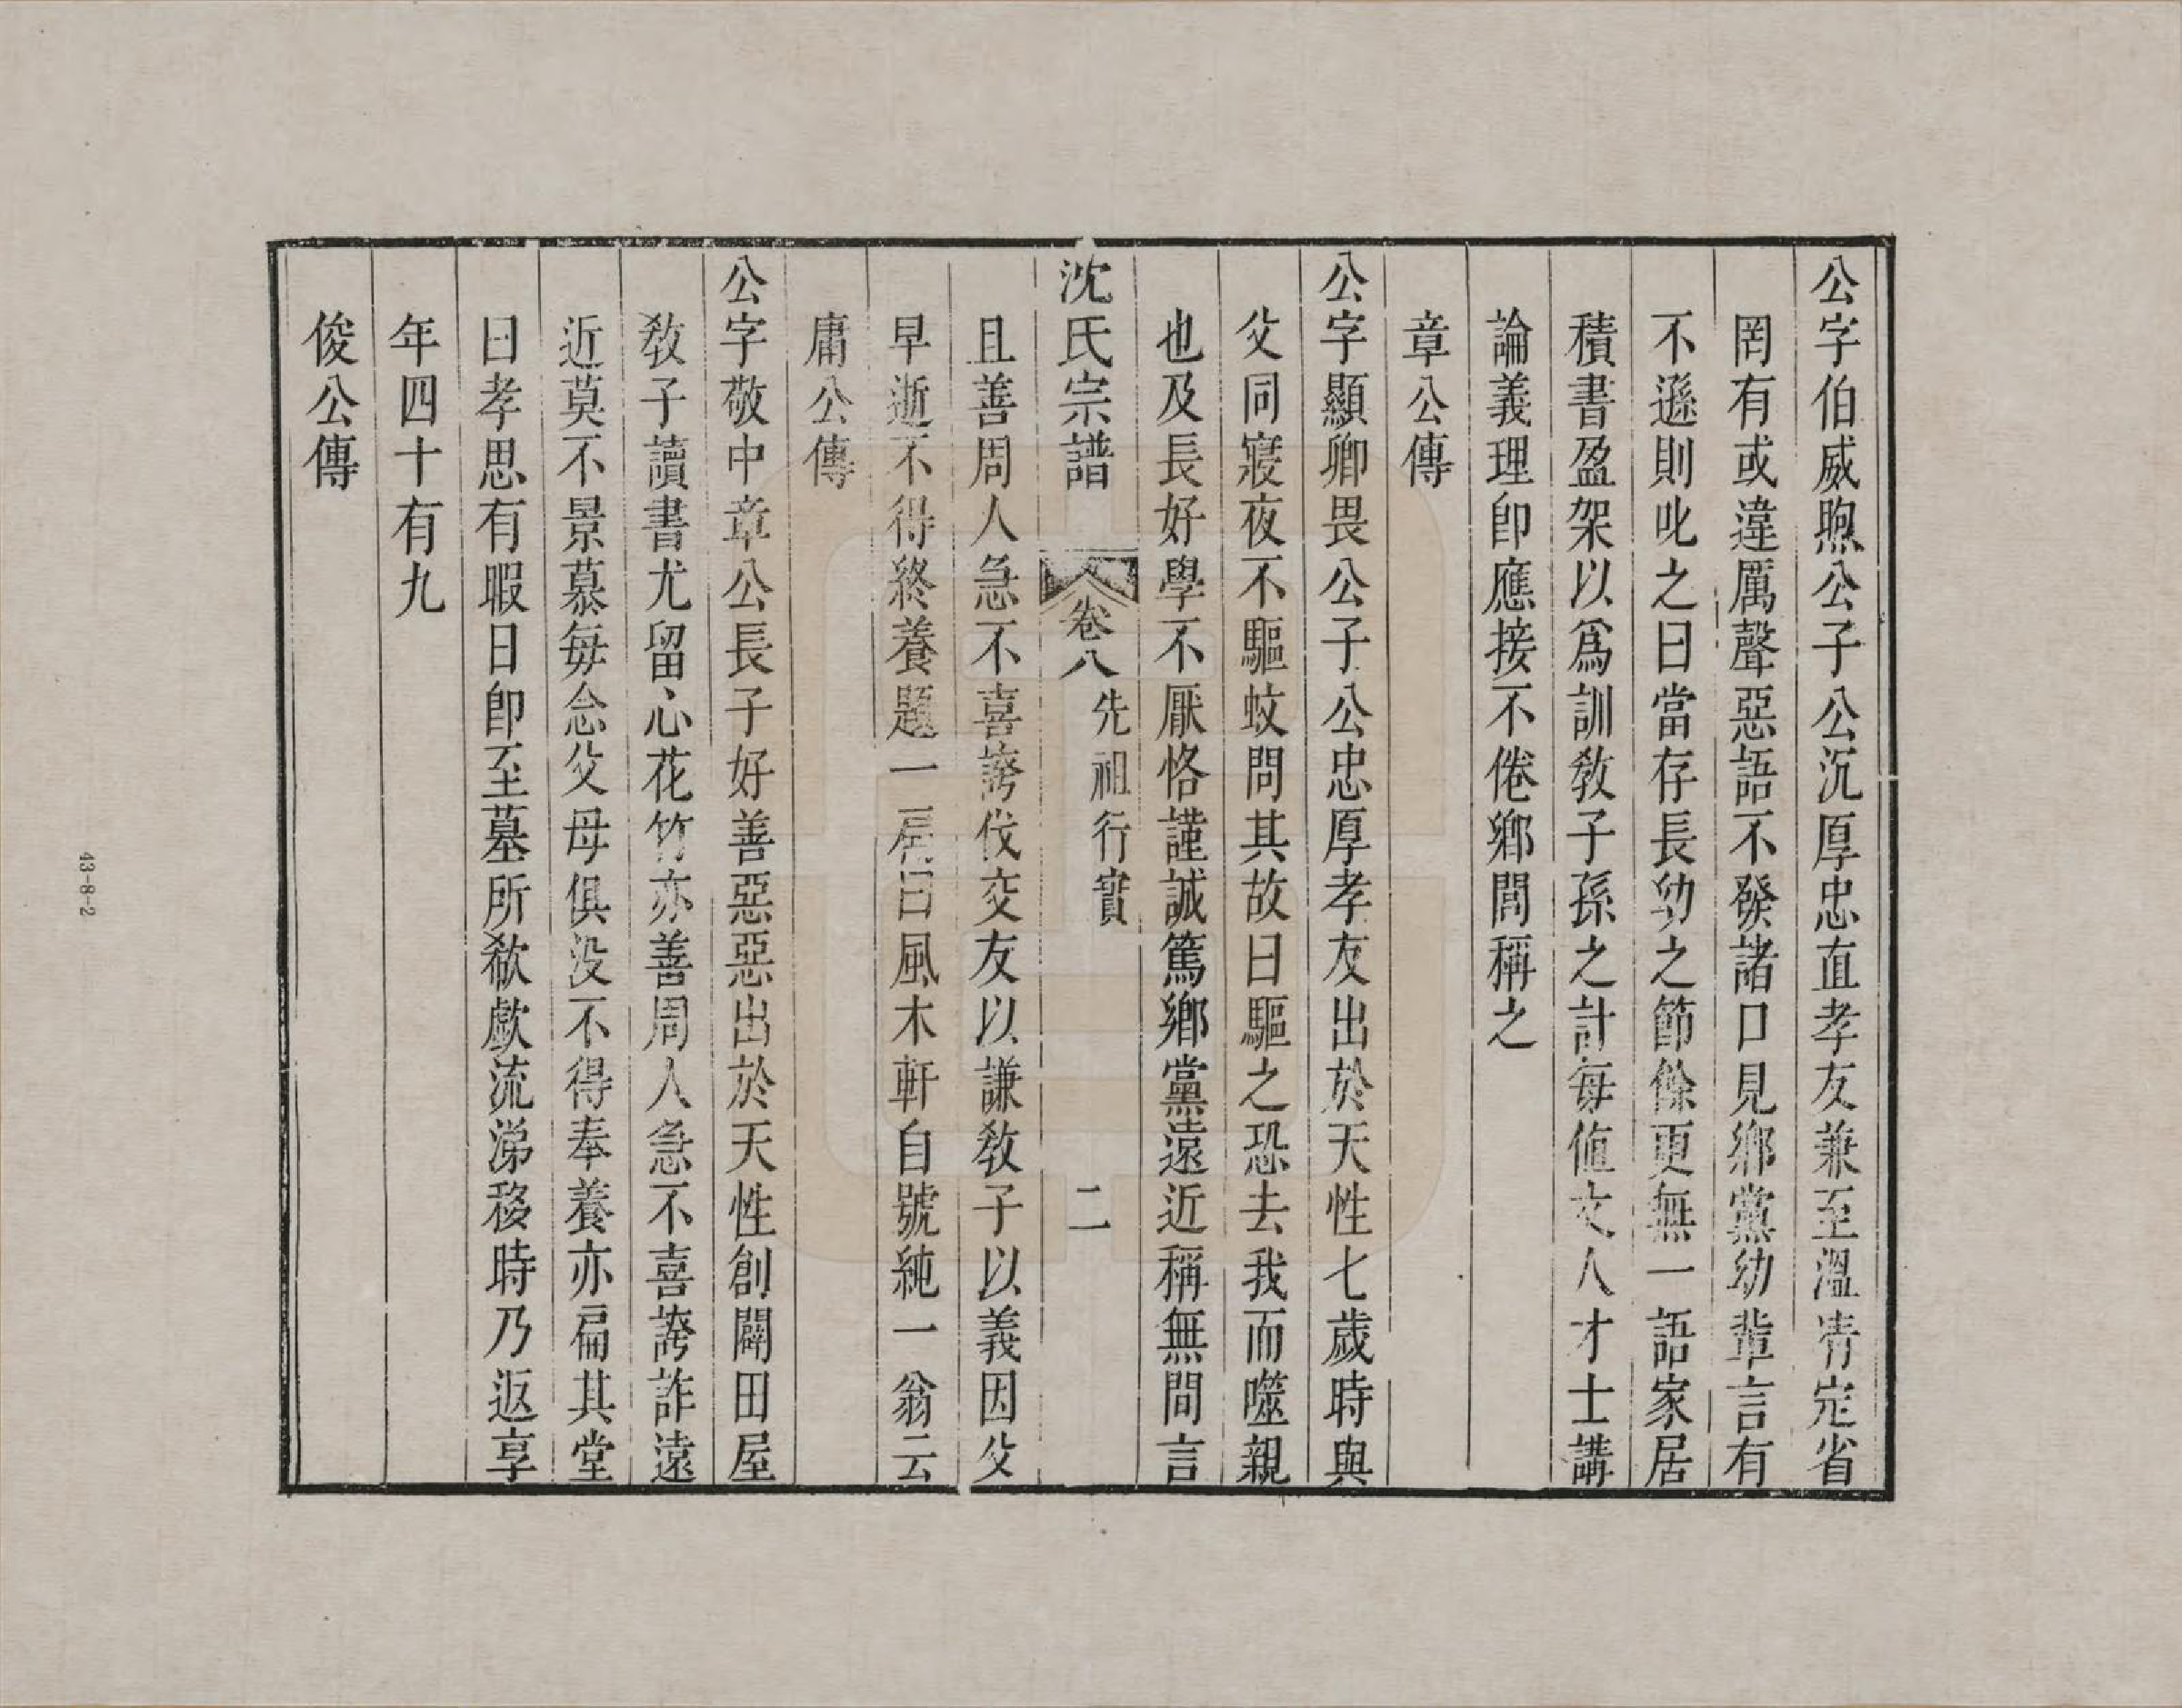 公字伯威煦公子公沉厚忠直孝友兼至溫凊定省
罔有或違厲聲惡語不發諸口見鄉黨幼輩言有
不遜則叱之曰當存長幼之節餘更無一語家居
積書盈架以爲訓敎子孫之計每値文人才士講
論義理卽應接不倦鄉閭稱之
章公傳
公字顯卿畏公子公忠厚孝友出於天性七歲時與
父同寢夜不驅蚊問其故曰驅之恐去我而噬親
也及長好學不厭恪謹誠篤鄉黨遠近稱無間言
沈氏宗譜
卷八
先祖行實
二
且善周人急不喜誇伐交友以謙敎子以義因父
早逝不得終養題一扁曰風木軒自號純一翁云
庸公傳
公字敬中章公長子好善惡惡出於天性創闢田屋
敎子讀書尤留心花竹亦善周人急不喜誇詐遠
近莫不景慕每念父母俱没不得奉養亦扁其堂
曰孝思有暇日卽至墓所欷歔流涕移時乃返享
年四十有九
俊公傳
43-8-2